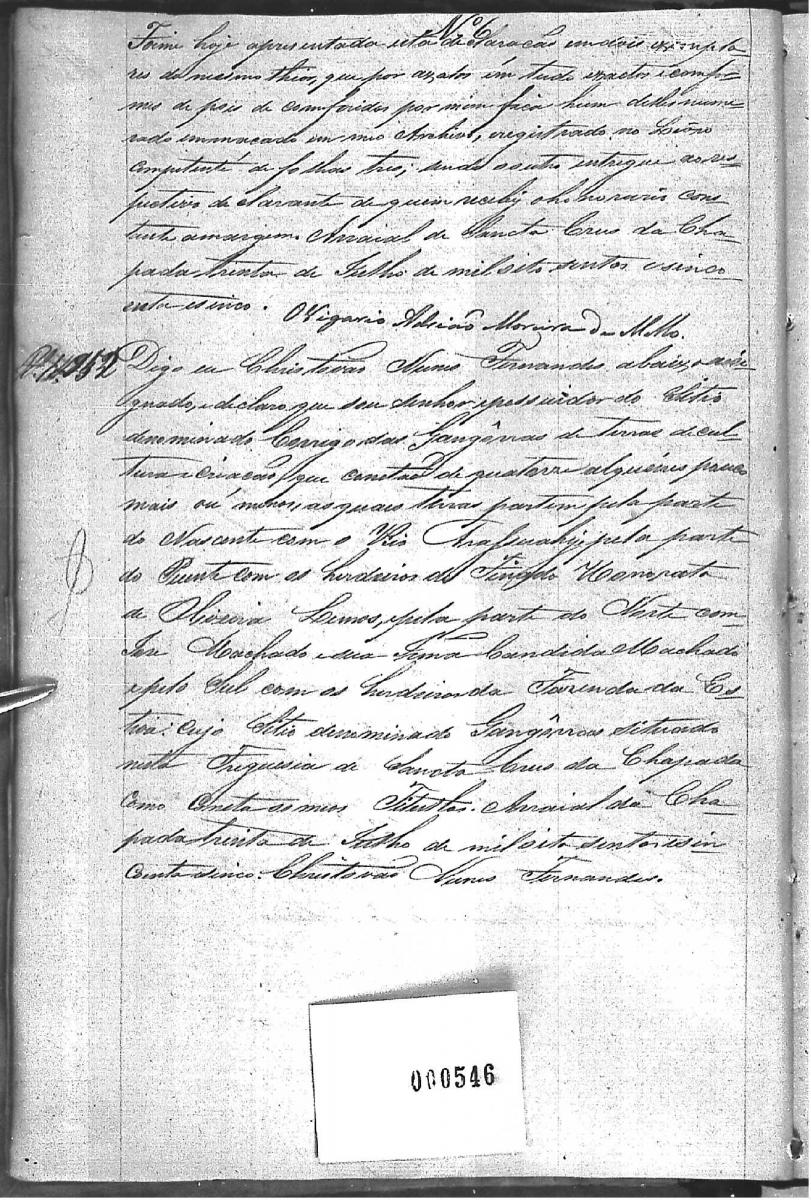 N. 6
Foime hoje apresentada esta declaração em dois exempla-
res do mesmo theor, que por axalos em tudo exactos e comfor-
mes de pois de comferidos por mim fica hum delles nume-
rado emmacado em meo Archivo, e registrado no Livro
competente de folhas tres, sendo o outro entregue ao res-
pectivo declarante de quem recebi o honorario cons-
tante a margem. Arraial de Sancta Crus da Cha-
pada trinta de Julho de mil oito sentos e sinco
enta e sinco. O Vigario Adrião Moreira de
Digo eu Christovão Nunes Fernandes abaixo assi-
gnado, e declaro que sou senhor e possuidor do Citio
denominado Corrigo das Gangôrras de terras de cul-
tura e criação, que constão de quatorze alquéires pouco
mais ou menos, as quaes terras partem pela parte
do Nascente com o Rio Arassuahy, pela parte
do Puente com os herdeiros do Finado Honorato
de Lemos, e pela parte do Norte com
José Machado e sua Irmã Candida Machado
e pelo Sul com os herdeiros da Fazenda da Es-
tiva: cujo Citio denominado Gangôrras situado
nesta Freguesia de Sancta Crus da Chapada
como consta os meos Titulos. Arraial da Cha-
pada trinta de Julho de mil oito sentos e sin
coenta e sinco. Christovão Nunes Fernandes.
000546